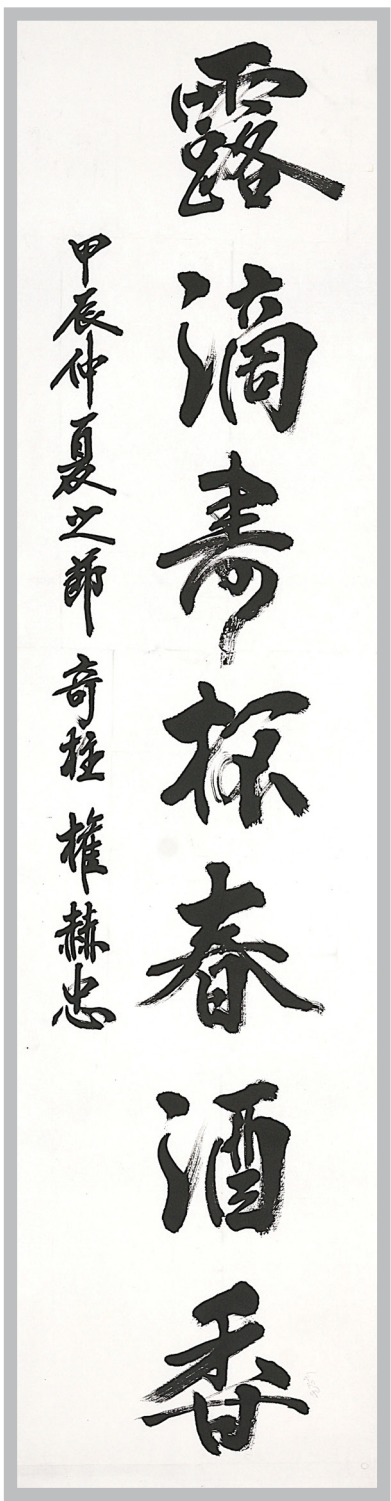 露滴壽杯春酒香
甲辰仲夏之節 奇柱 權赫忠